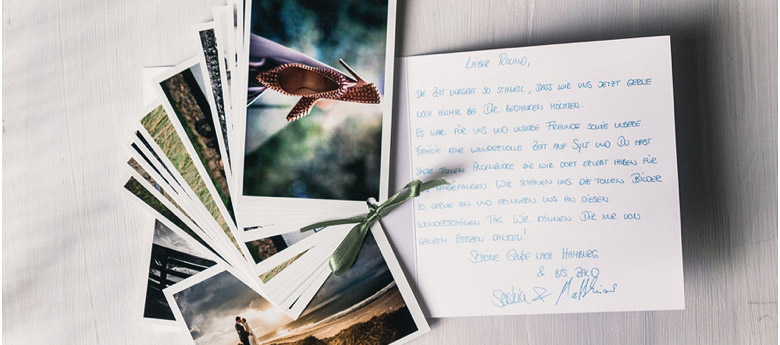 LIEBER ROLAND,
DIE ZEIT VERGEHT SO SCHNELL, DASS WIR UNS JETZT GERNE
NOCH EINMAL BEI DIR BEDANKEN MÖCHTEN.
ES WAR FÜR UNS UND UNSERE FREUNDE SOWIE UNSERE
FAMILIE EINE WUNDERVOLLE ZEIT AUF SYLT UND DU HAST
DIESE TOLLEN AUGENBLICKE DIE WIR DORT ERLEBT HABEN FÜR
EINGEFANGEN. WIR SCHAUEN UNS DIE TOLLEN BILDER
SO GERNE AN UND ERINNERN UNS AN DIESEN
WUNDERSCHÖNEN TAG. WIR KÖNNEN DIR NUR VON
GANZEM HERZEN DANKEN!
SCHÖNE GRÜSSE NACH HAMBURG
& BIS BALD
Saskia & Matthias